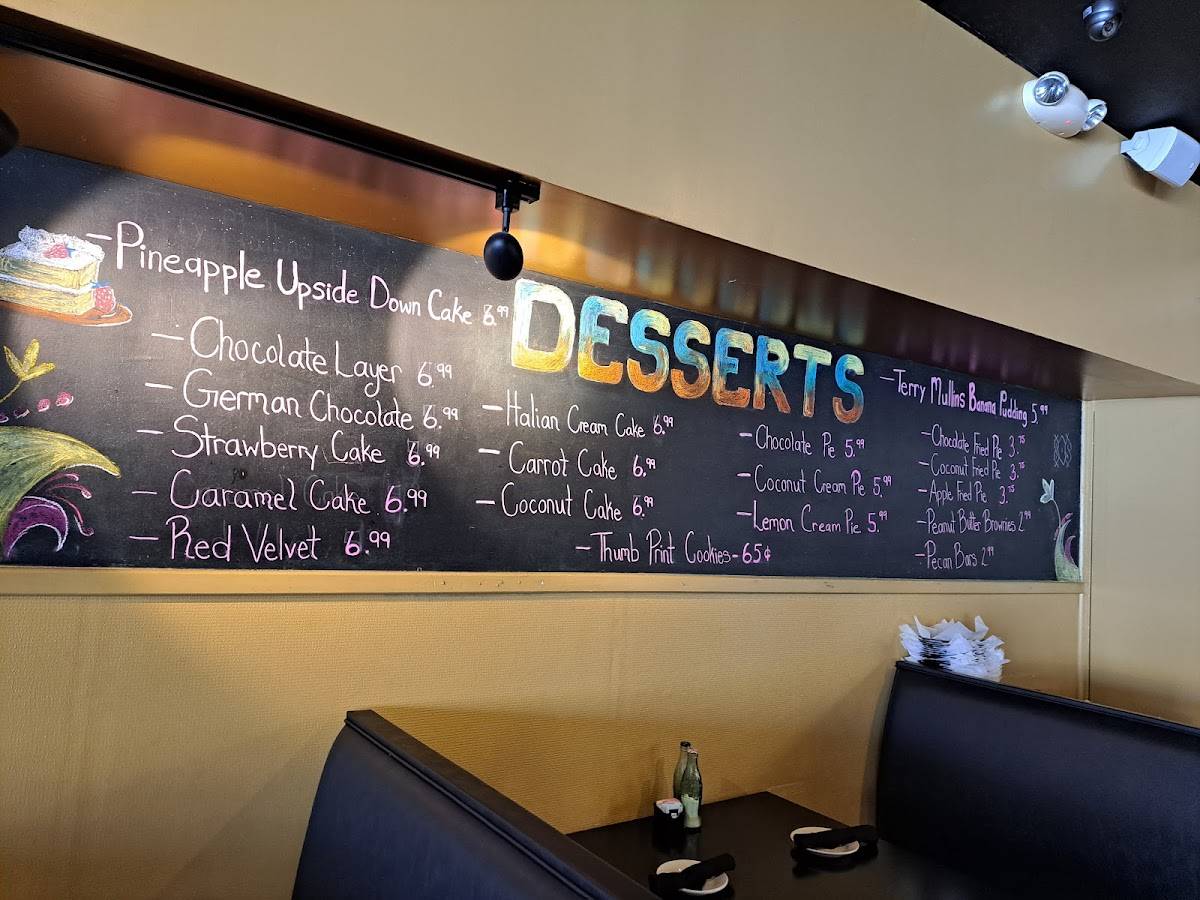 DESSERTS
-Pineapple Upside Down Cake 6.99
-Chocolate Layer 6.99
-German Chocolate 6.99
-Strawberry Cake 6.99
-Caramel Cake 6.99
-Red Velvet 6.99
-Italian Cream Cake 6.99
-Carrot Cake 6.99
-Coconut Cake 6.99
-Thumb Print Cookies-65¢
-Chocolate Pie 5.99
-Coconut Cream Pie 5.99
-Lemon Cream Pie 5.99
-Terry Mullins Banana Pudding 5.99
-Chocolate Fried Pie 3.75
-Coconut Fried Pie 3.75
-Apple Fried Pie 3.75
-Peanut Butter Brownies 2.99
-Pecan Bars 2.99